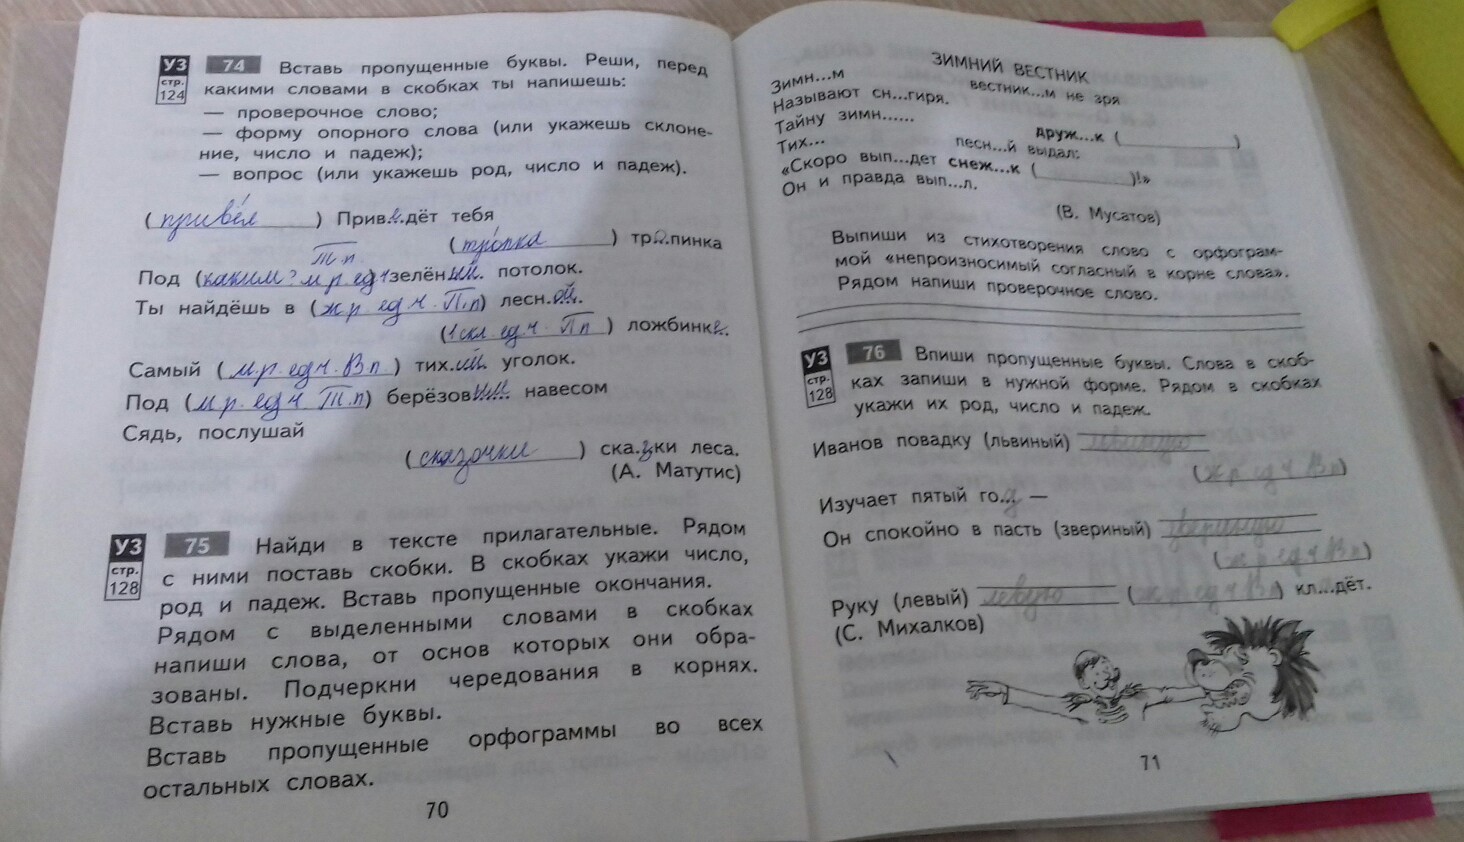 УЗ 74 Вставь пропущенные буквы. Реши, перед
стр. 124 какими словами в скобках ты напишешь:
— проверочное слово;
— форму опорного слова (или укажешь склоне-
ние, число и падеж);
— вопрос (или укажешь род, число и падеж).
(привёл) Прив.е.дёт тебя
(тропка) тр.о.пинка
Т.п.
Под (каким? м.р. ед.ч) зелён.ый. потолок.
Ты найдёшь в (ж.р. ед.ч. П.п) лесн.ой.
(1 скл. ед.ч. Пп) ложбинке.
Самый (м.р. ед.ч. В.п) тих.ий. уголок.
Под (м.р. ед.ч Т.п) берёзов.ым. навесом
Сядь, послушай
(сказочки) ска.з.ки леса.
(А. Матутис)
УЗ 75 Найди в тексте прилагательные. Рядом
стр. 128 с ними поставь скобки. В скобках укажи число,
род и падеж. Вставь пропущенные окончания.
Рядом с выделенными словами в скобках
напиши слова, от основ которых они обра-
зованы. Подчеркни чередования в корнях.
Вставь нужные буквы.
Вставь пропущенные орфограммы во всех
остальных словах.
70
ЗИМНИЙ ВЕСТНИК
Зимн...м вестник...м не зря
Называют сн...гиря.
Тайну зимн...... друж...к ( )
Тих... песн...й выдал:
«Скоро вып...дет снеж...к ( )!»
Он и правда вып...л.
(В. Мусатов)
Выпиши из стихотворения слово с орфограм-
мой «непроизносимый согласный в корне слова».
Рядом напиши проверочное слово.
УЗ 76 Впиши пропущенные буквы. Слова в скоб-
стр. 128 ках запиши в нужной форме. Рядом в скобках
укажи их род, число и падеж.
Иванов повадку (львиный) львиную
(ж.р ед.ч В.п)
Изучает пятый го...д —
Он спокойно в пасть (звериный) звериную
(ж.р ед.ч В.п)
Руку (левый) левую (ж.р ед.ч В.п) кл...дёт.
(С. Михалков)
71